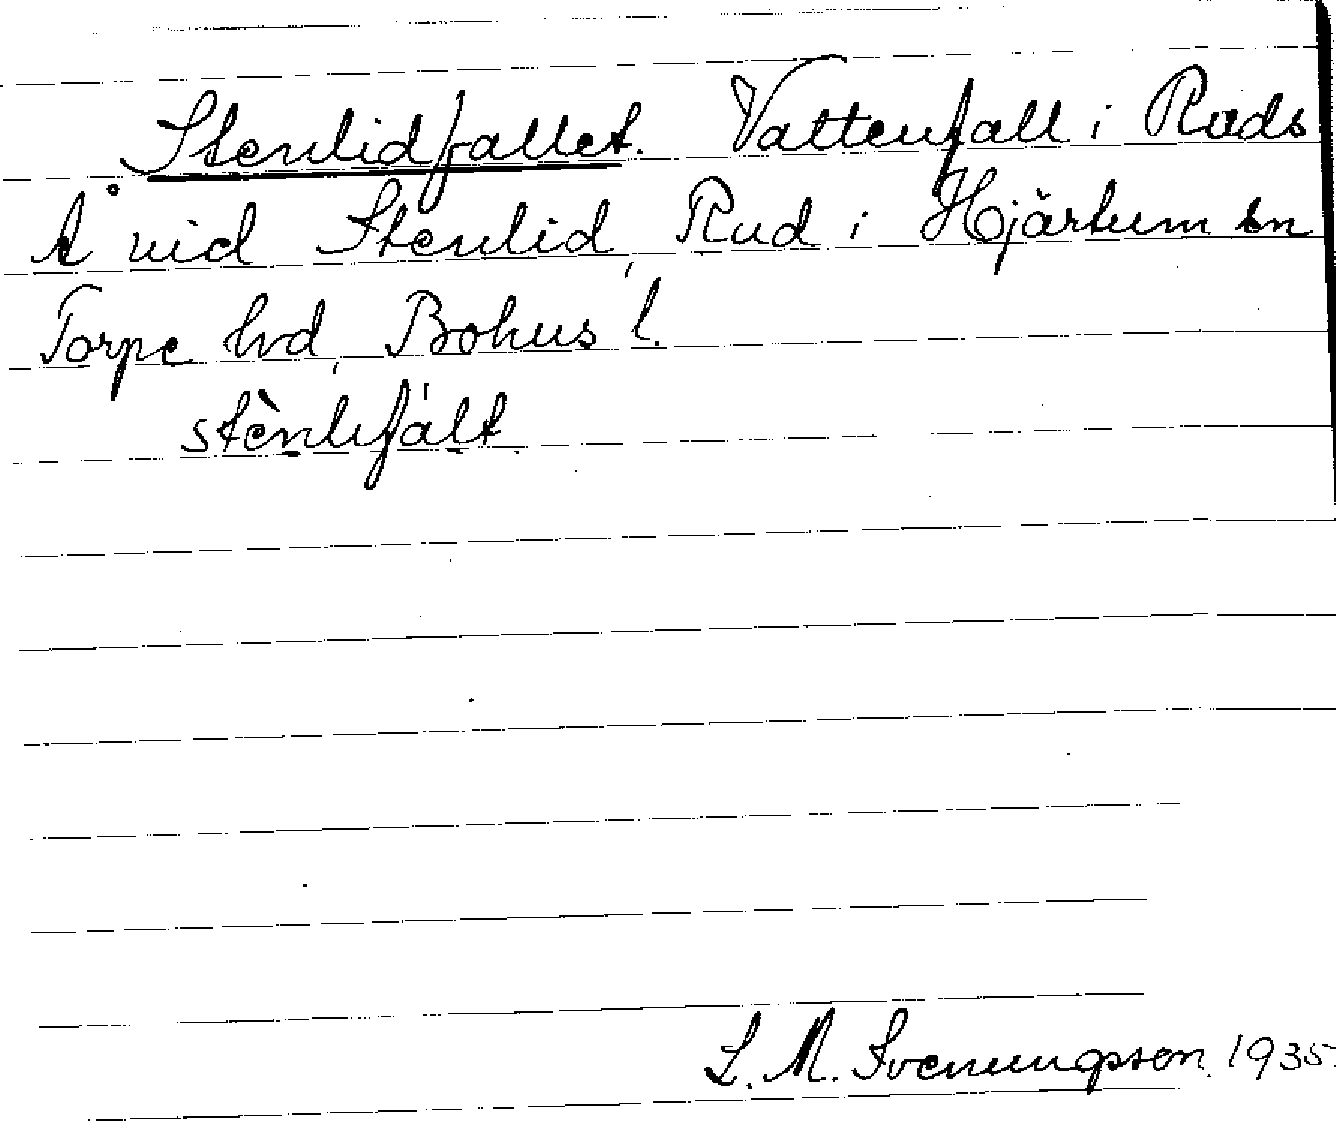 Stenlidfallet. Vattenfall i Ruds
Å vid Stenlid, Rud i Hjärtum sn
Torpe hrd, Bohus l.
stènlifált
L. M. Svenungsson 1935.